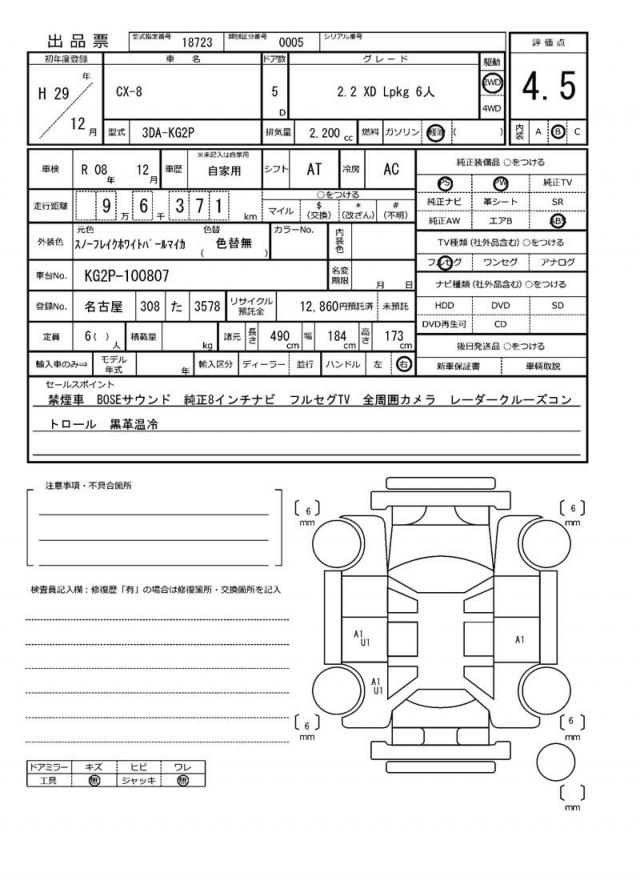 出品票 型式指定番号 18723 類別区分番号 0005 シリアル番号
初年度登録 車名 ドア数 グレード 駆動 評価点
H 29 年 12 月 CX-8 5 D 2.2 XD Lpkg 6人 2WD 4WD 4.5
型式 3DA-KG2P 排気量 2,200 cc 燃料 ガソリン 軽油 ( ) 内装 A B C
車検 R 08 年 12 月 車歴 ※未記入は自家用 自家用 シフト AT 冷房 AC
走行距離 9 6 万 千 3 7 1 km ○をつける マイル $ (交換) * (改ざん) # (不明)
外装色 元色 スノーフレイクホワイトパールマイカ 色替 ( 色替無 ) カラーNo. 内装色
車台No. KG2P-100807 名変期限 月 日
登録No. 名古屋 308 た 3578 リサイクル預託金 12,860円預託済 未預託
定員 6( ) 人 積載量 kg 諸元 長さ 490 cm 幅 184 cm 高さ 173 cm
輸入車のみ⇒ モデル年式 年 輸入区分 ディーラー 並行 ハンドル 左 右
純正装備品 ○をつける
PS PW 純正TV
純正ナビ 革シート SR
純正AW エアB ABS
TV種類(社外品含む) ○をつける
フルセグ ワンセグ アナログ
ナビ種類(社外品含む) ○をつける
HDD DVD SD
DVD再生可 CD
後日発送品 ○をつける
新車保証書 車輌取説
セールスポイント
禁煙車 BOSEサウンド 純正8インチナビ フルセグTV 全周囲カメラ レーダークルーズコン
トロール 黒革温冷
注意事項・不具合箇所
検査員記入欄：修復歴「有」の場合は修復箇所・交換箇所を記入
[ 6 ] mm
[ 6 ] mm
A1
U1
A1
A1
U1
[ 6 ] mm
[ 6 ] mm
[ ] mm
ドアミラー キズ ヒビ ワレ
工具 無 ジャッキ 無